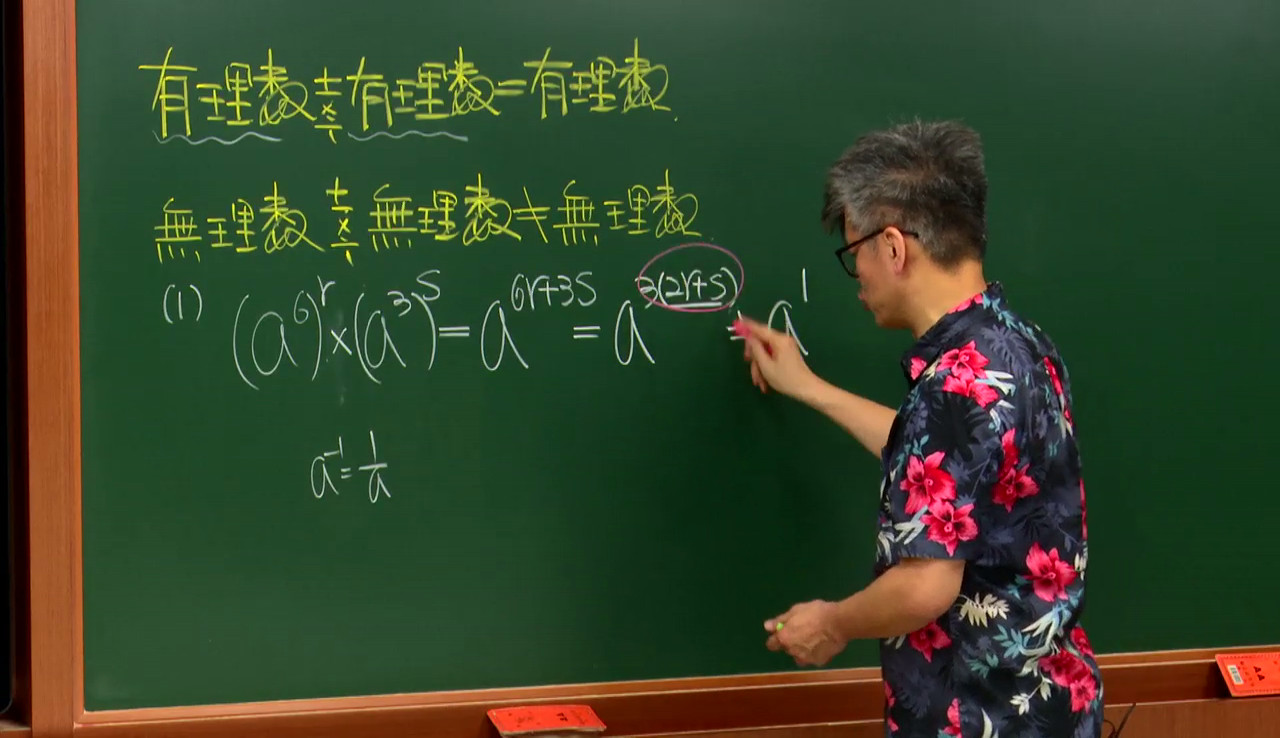 有理數±×÷有理數=有理數.
無理數±×÷無理數≠無理數
(1) (a⁶)ʳ×(a³)ˢ=a^{6r+3s}=a^{3(2r+s)}=a¹
a⁻¹=1/a